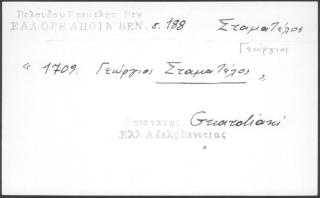 Βελούδου Κατάλογ Βεν
ΕΛΛ ΟΡΘ ΑΠΟΙΚ ΒΕΝ. σ. 188 Σταματέλος
Γεώργιος
" 1709. Γεώργιος Σταματέλος "
Επιστάτης Guardiani
Ελλ Αδελφ Βενετίας